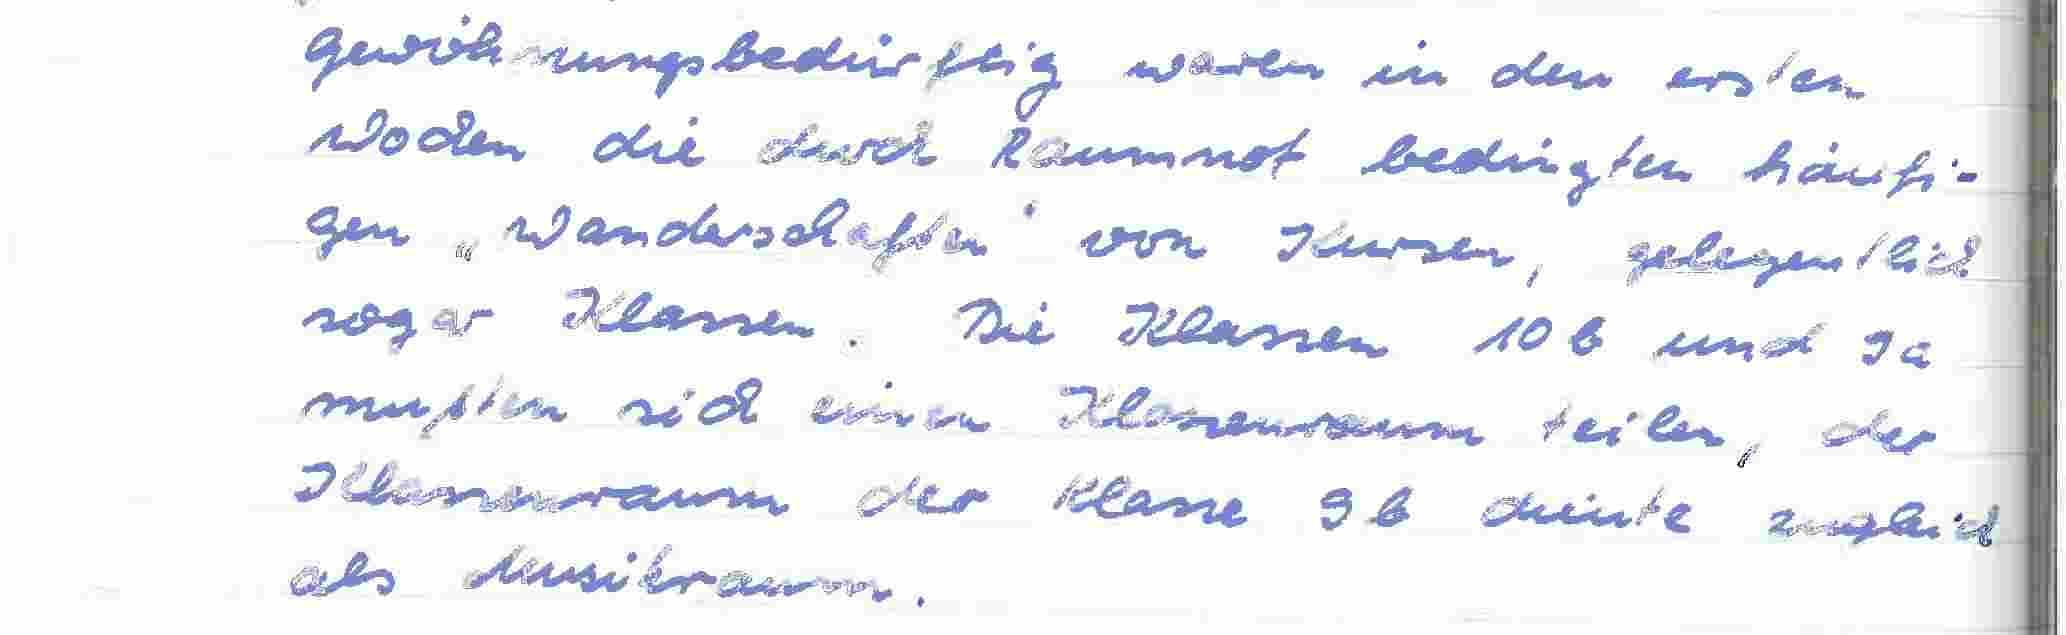 Gewöhnungsbedürftig waren in den ersten
Wochen die durch Raumnot bedingten häufi-
gen „Wanderschaften" von Kursen, gelegentlich
sogar Klassen. Die Klassen 10 b und 9a
mußten sich einen Klassenraum teilen, der
Klassenraum der Klasse 9b diente zugleich
als Musikraum.